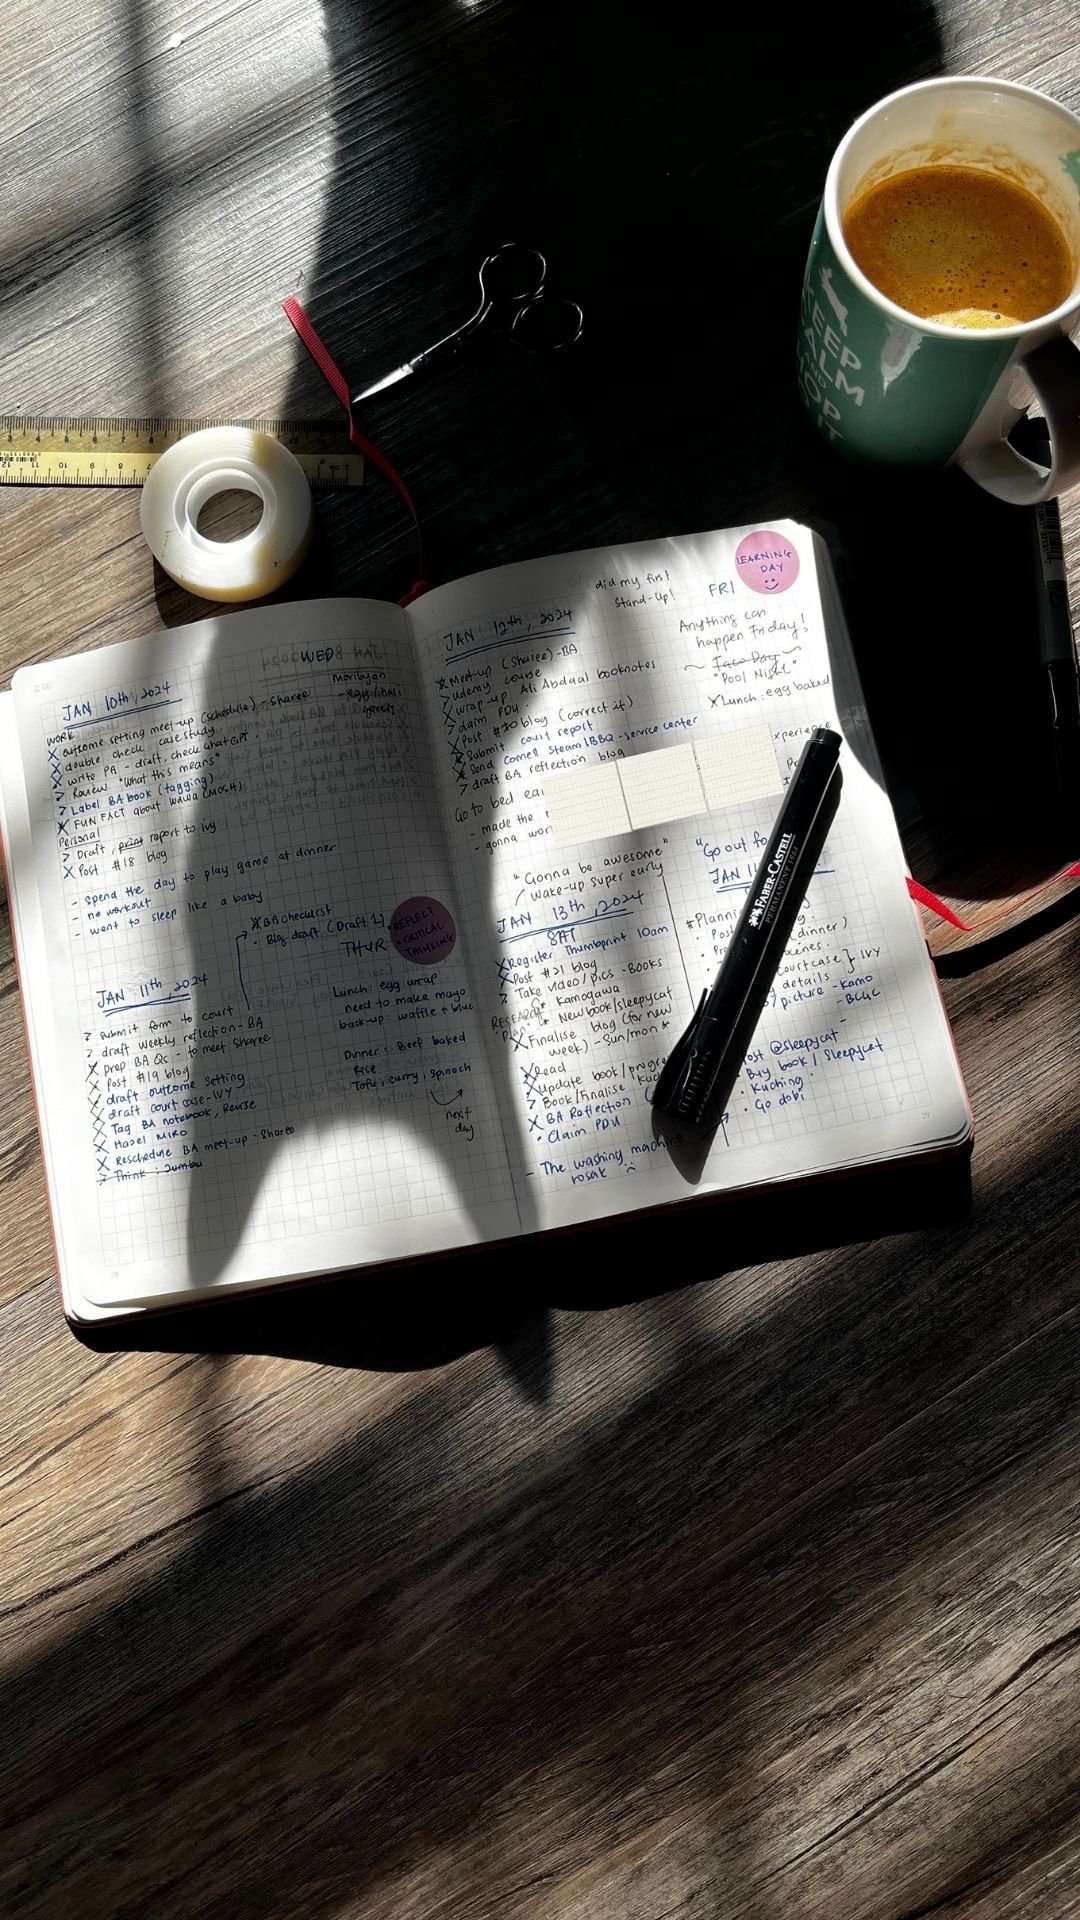 KEEP
CALM
AND
HOP
IT
WED
JAN 10th, 2024
work
X outcome setting meet-up (schedule) - Sharee
X double check case study
X write PA - draft, check chatGPT
> Review "What this means"
> Label BA book (tagging)
X FUN FACT about
Personal
> Draft, print report to ivy
X Post #18 blog
- spend the day to play game at dinner
- no workout
- went to sleep like a baby
X BA checklist
• Blog draft (Draft 1)
THUR
REFLECT
• CRITICAL
THINKING
JAN 11th, 2024
> submit form to court
> draft weekly reflection - BA
X prep BA Qs - to meet Sharee
X Post #19 blog
X draft outcome setting
X draft court case - IVY
X Tag BA notebook, Revise
X Hazel MIRO
X Reschedule BA meet-up - Sharee
> Think : Jumbu
Lunch: egg wrap
need to make mayo
back-up: waffle + blue
Dinner: Beef baked
Rice
Tofu, curry, spinach
next
day
28
did my first
Stand-Up!
LEARNING
DAY
FRI
JAN 12th, 2024
Anything can
happen Friday!
~ Taco Day ~
"Pool Night"
X Lunch: egg baked
X Meet-up (Sharee) - BA
> udemy course
> wrap-up Ali Abdaal booknotes
> claim PDU
X Post #20 blog (correct it)
X Submit court report
X Send Cornell Steam/BBQ - service center
> draft BA reflection blog
Go to bed
- made the
- gonna
"Gonna be awesome"
wake-up super early
JAN 13th, 2024
SAT
X Register Thumbprint 10am
X Post #21 blog
> Take video/pics - BOOKS
RESEARCH
"plan"
Kamogawa
New book/sleepycat
X Finalise blog (for new
week) - Sun/mon *
X Read
X Update book/
> Book/Finalise
X BA Reflection
• Claim PDU
- The washing machine
rosak
"Go out
JAN
(dinner)
court case } IVY
details
picture - Kamo
- BCGC
Post @sleepycat
• Buy book / Sleepycat
• Kuching
• Go dobi
29
FABER-CASTELL